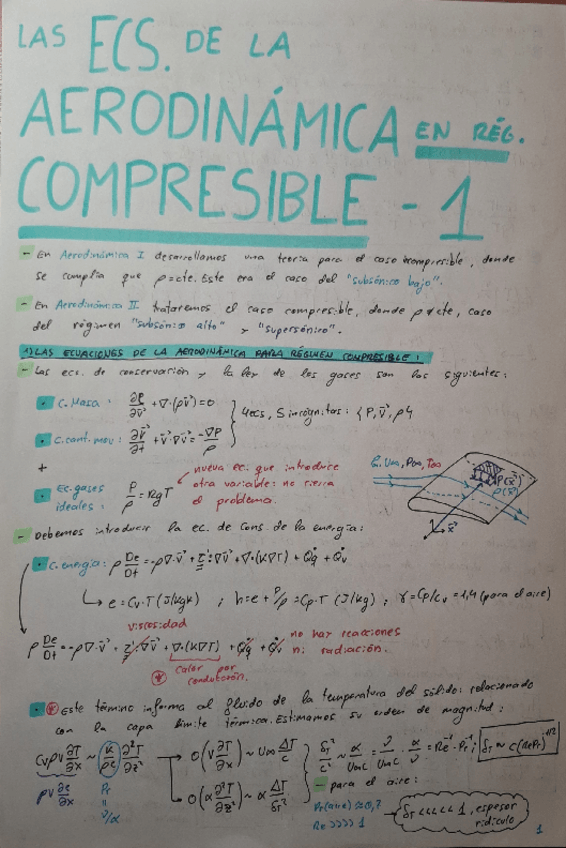 LAS ECS. DE LA
AERODINÁMICA EN RÉG.
COMPRESIBLE - 1
- En Aerodinámica I desarrollamos una teoría para el caso incompresible, donde
se cumplía que ρ=cte. Este era el caso del "subsónico bajo".
- En Aerodinámica II trataremos el caso compresible, donde ρ≠cte, caso
del régimen "subsónico alto" y "supersónico".
1) LAS ECUACIONES DE LA AERODINÁMICA PARA RÉGIMEN COMPRESIBLE:
- Las ecs. de conservación y la ley de los gases son las siguientes:
· C. Masa: ∂ρ/∂t + ∇·(ρv⃗)=0
· C. cant. mov: ∂v⃗/∂t + v⃗·∇v⃗ = -∇P/ρ
} 4 ecs, 5 incógnitas: {P, v⃗, ρ}
+
· Ec. gases ideales: P/ρ = RgT
nueva ec. que introduce
otra variable: no cierra
el problema.
U∞, P∞, T∞
P(x⃗)
ρ(x⃗)
x⃗
- Debemos introducir la ec. de cons. de la energía:
· C. energía: ρ De/Dt = -ρ∇·v⃗ + τ':∇v⃗ + ∇·(K∇T) + Q̇q + Q̇r
↳ e = Cv·T (J/kgK) ; h = e + P/ρ = Cp·T (J/kg) ; γ = Cp/Cv = 1,4 (para el aire)
viscosidad
ρ De/Dt = -ρ∇·v⃗ + τ':∇v⃗ + ∇·(K∇T) + Q̇q + Q̇r
no hay reacciones
ni radiación.
* calor por
conducción.
· * Este término informa al fluido de la temperatura del sólido: relacionado
con la capa límite térmica. Estimamos su orden de magnitud:
Cvρv ∂T/∂x ~ (K/ρc) ∂²T/∂z² → O(v ∂T/∂x) ~ U∞ ΔT/c
ρv ∂e/∂x
Pr
"
ν/α
↳ O(α ∂²T/∂z²) ~ α ΔT/δT²
} δT²/c² ~ α/U∞c = ν/U∞c · α/ν = Re⁻¹·Pr⁻¹ ; δT ~ c(RePr)^-1/2
- para el aire:
Pr(aire) ≈ 0,7
Re >>>> 1
→ δT <<<<< 1, espesor
ridículo
1